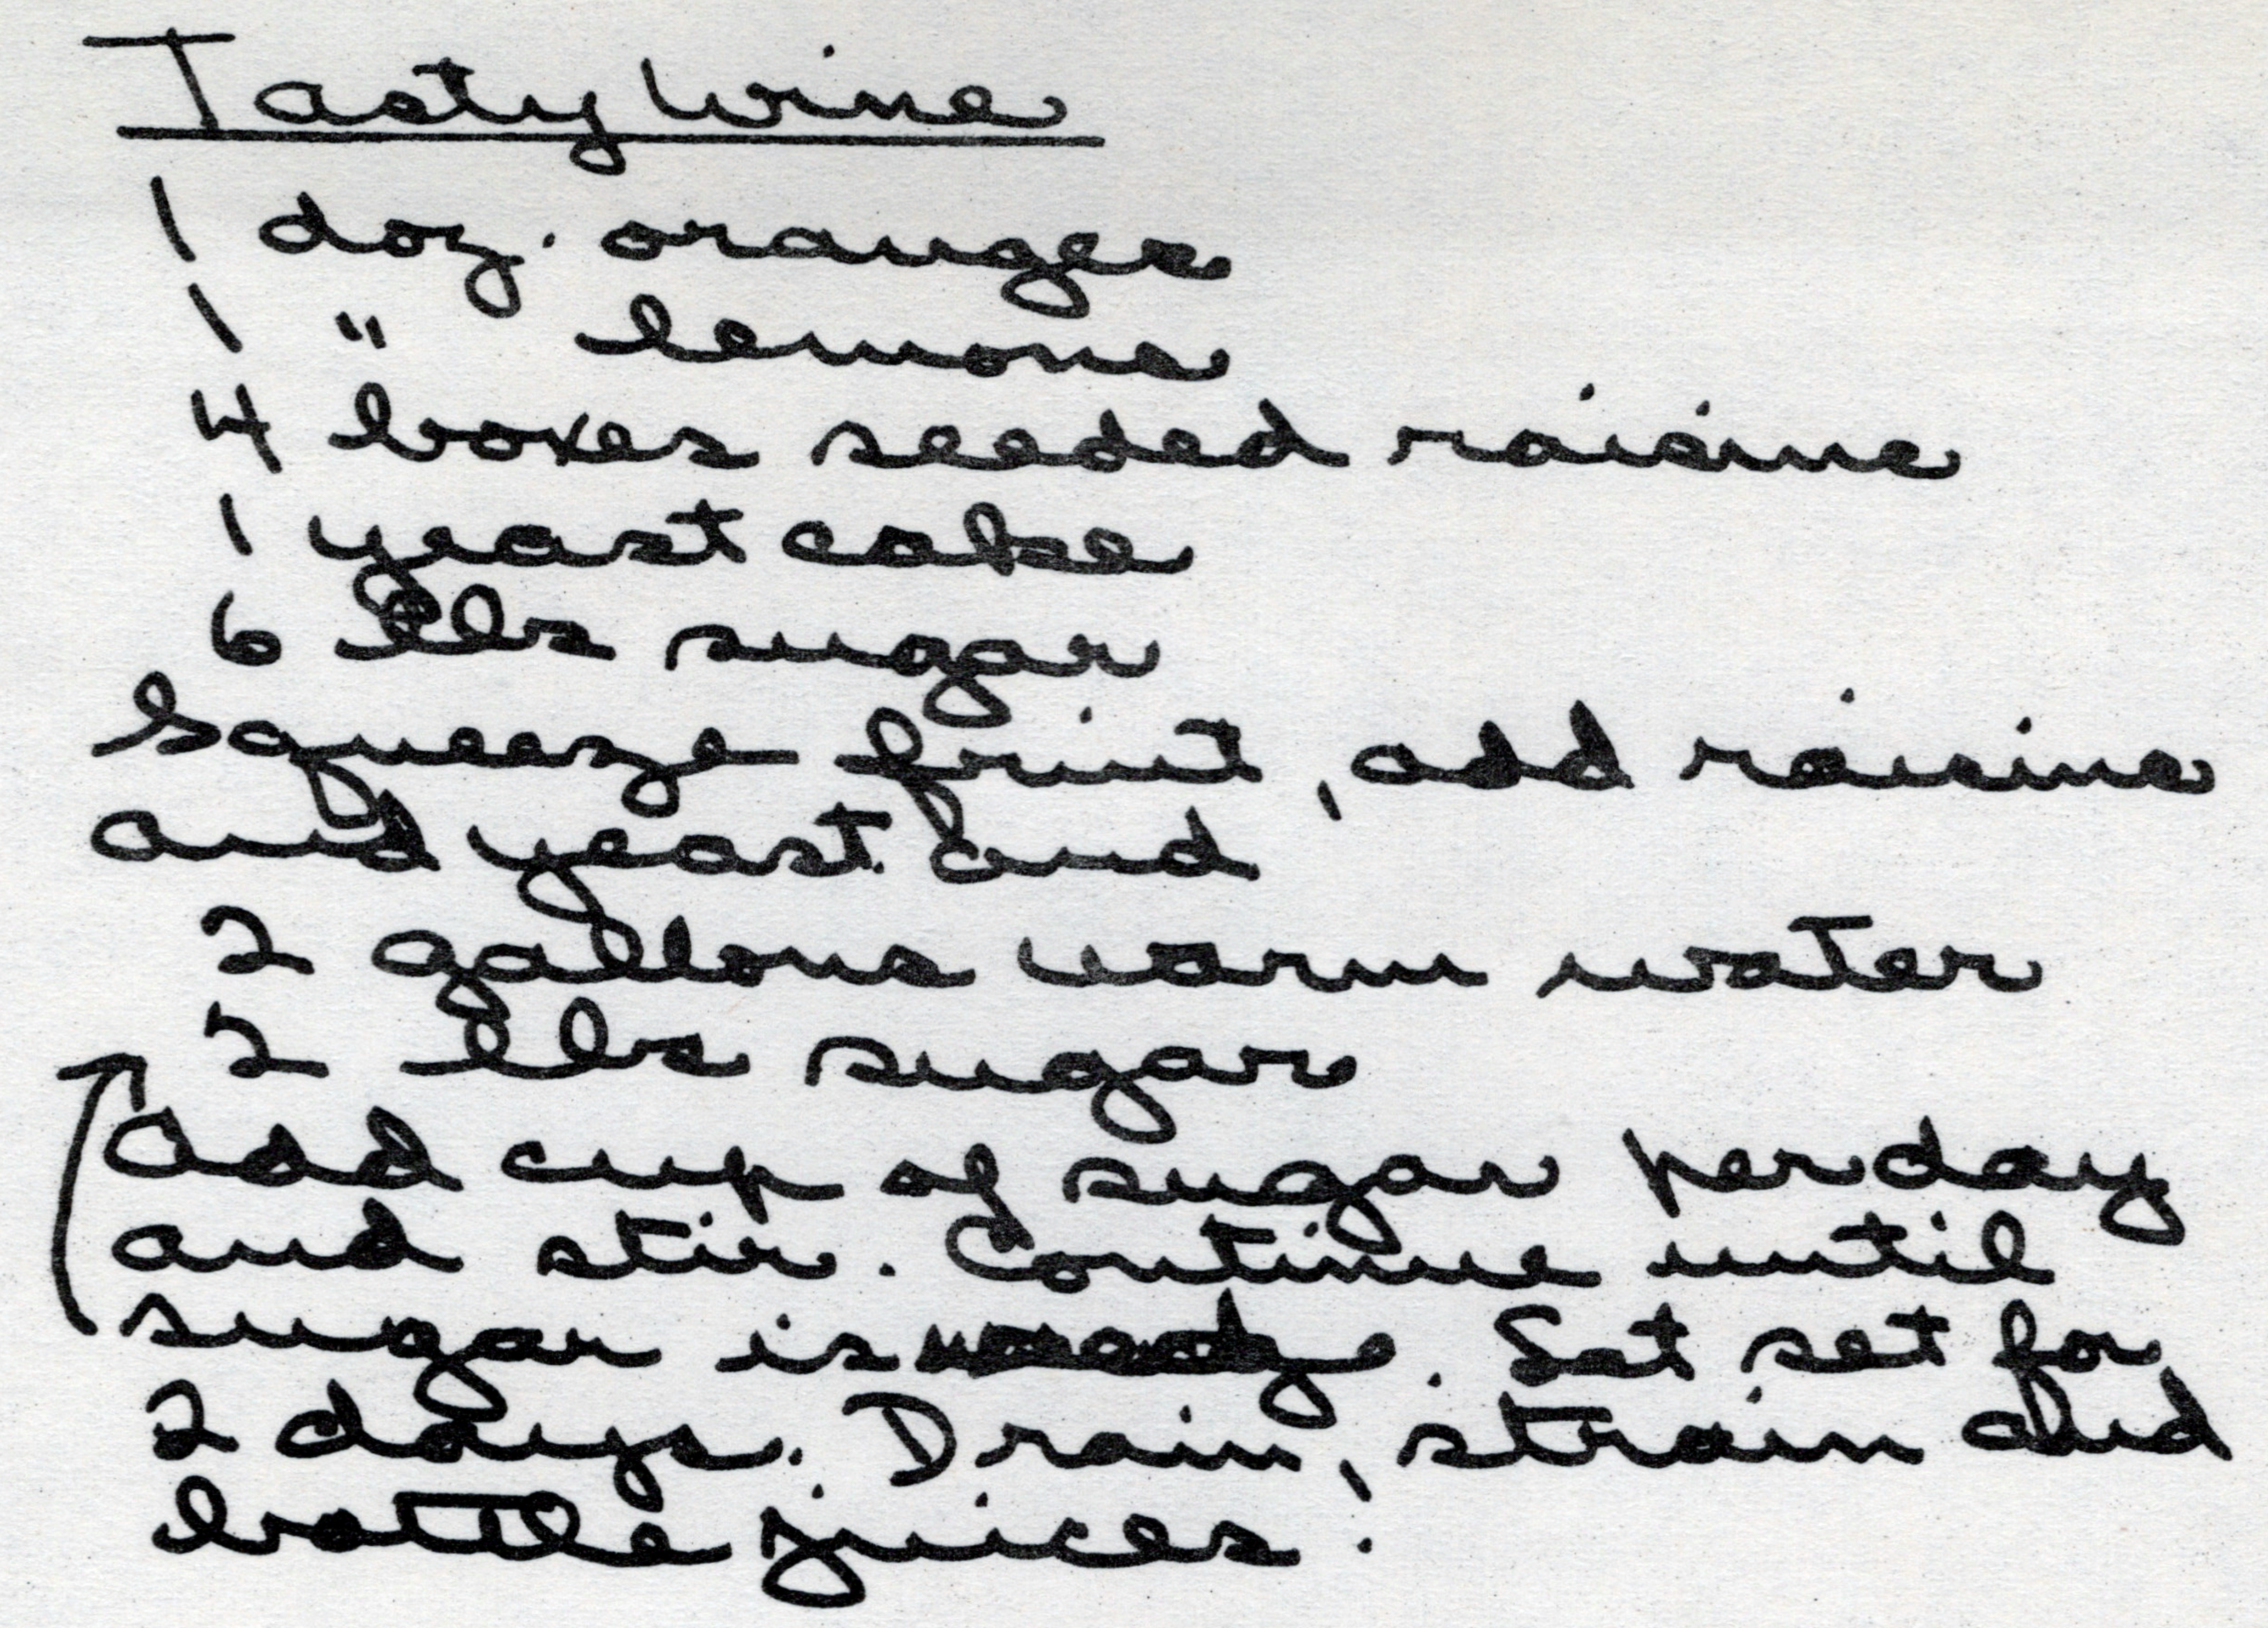 Tasty Wine
1 doz. oranges
1 " lemons
4 boxes seeded raisins
1 yeast cake
6 lbs sugar
Squeeze fruit, add raisins
and yeast and
2 gallons warm water
2 lbs sugar
Add cup of sugar per day
and stir. Continue until
sugar is . Set set for
2 days. Drain, strain and
bottle juices!